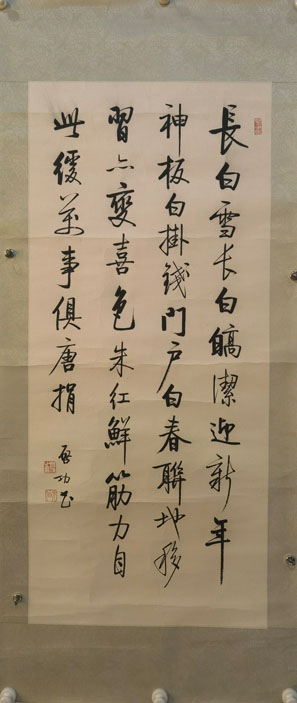 長白雪长白皜潔迎新年
神板白掛錢門户白春聯地移
習亦變喜色朱红鮮筋力自
此缓萬事俱唐捐
啟功书